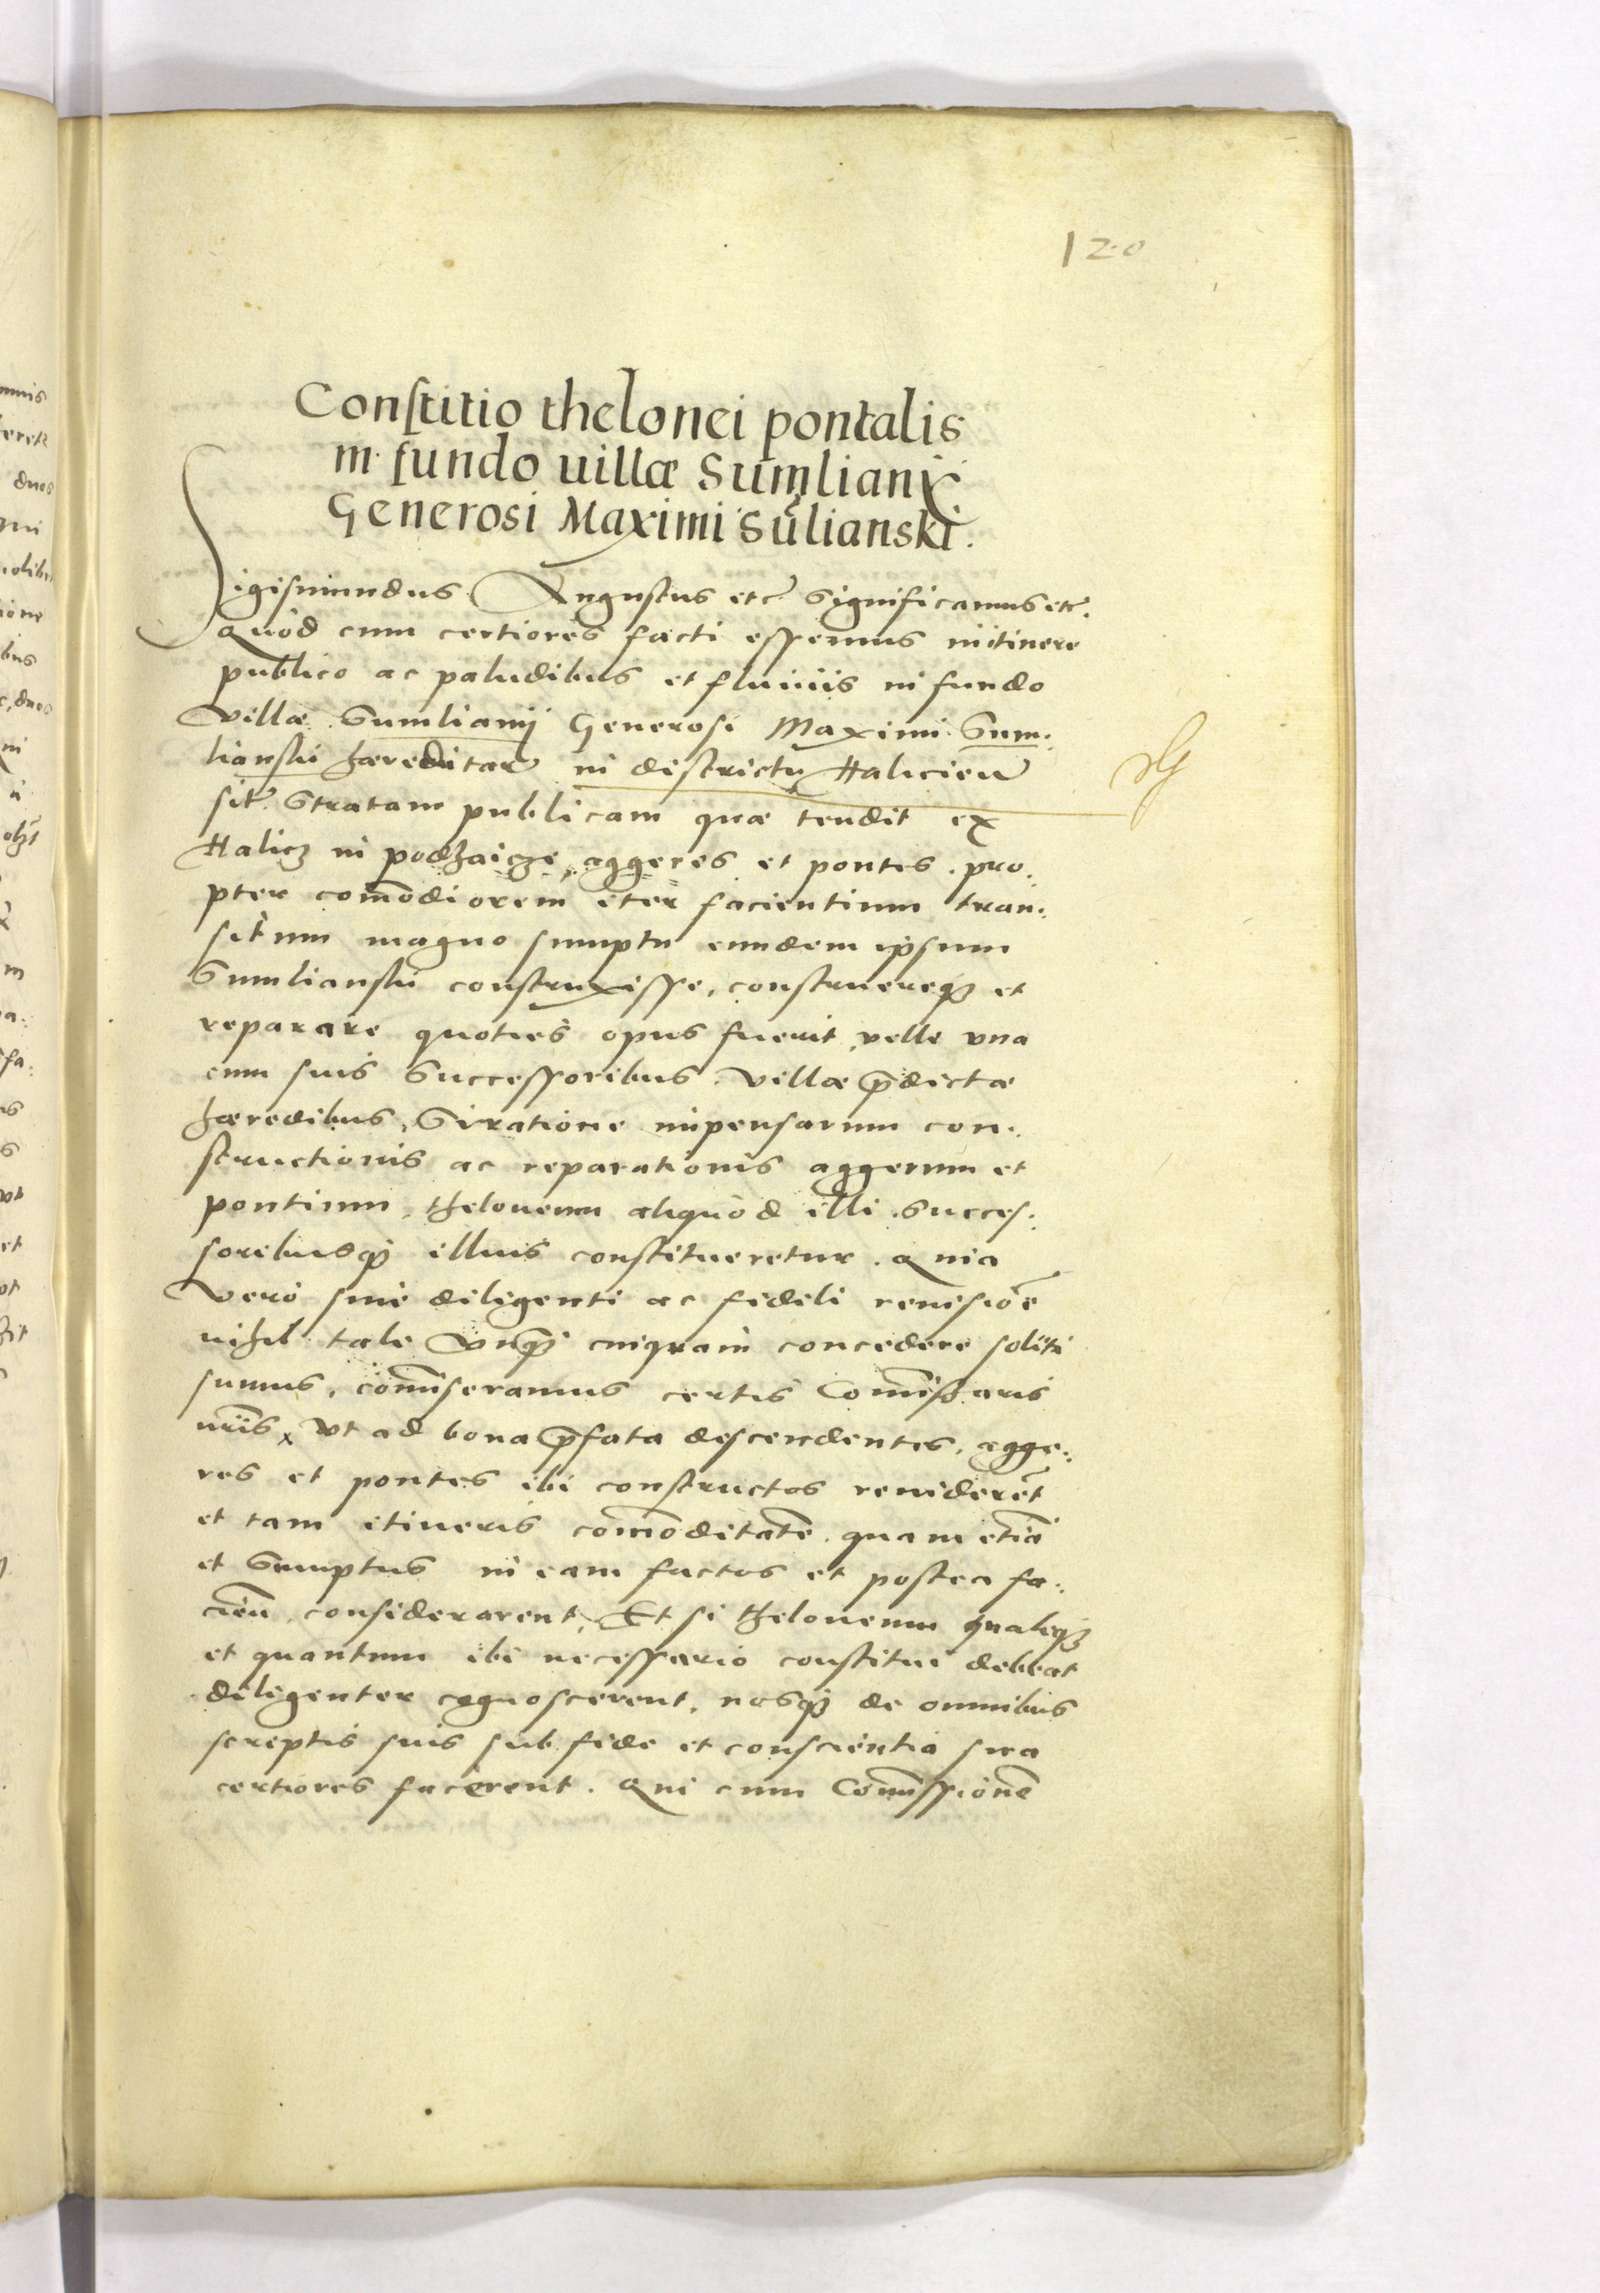 120
Constitio thelonei pontalis
in fundo uillæ Sumlianÿ
Generosi Maximi Sulianski.
Sigismundus Augustus etc̃ significamus etc̃.
Quod cum certiores facti essemus in itinere
publico ac paludibus et fluuiis in fundo
villæ Sumlianij Generosi Maximi Sum:
lianski hæreditar̃ in districtu Halicieñ
sit̃. Stratam publicam quæ tendit ex
Halicz in podhaicze, aggeres et pontes. pro:
pter com̃odiorem iter facientium tran:
situm magno sumptu eundem ipsum
Sumlianski construxisse, construereqꝫ et
reparare quoties opus fuerit, velle vna
cum suis Successoribus. villæ p̃dictæ
hæredibus, Si ratione impensarum con:
structionis ac reparationis aggerum et
pontium, theloneum aliquod illi. Succes:
soribusqꝫ illius constitueretur. Quia
vero sine diligenti ac fideli reuisiõe
nihil tale vnqꝫ cuiquam concedere soliti
sumus, com̃iseramus certis Com̃issaris
nr̃is, vt ad bona p̃fata descendentes, agge:
res et pontes ibi constructos reuiderẽt
et tam itineris com̃oditatẽ quam etiã
et Sumptus in eam factos et postea fa:
cieñ considerarent, Et si theloneum qualeqꝫ
et quantum ibi necessario constitui debeat
diligenter cognoscerent, nosqꝫ de omnibus
scriptis suis sub fide et conscientia sua
certiores facerent. Qui cum Com̃issionẽ